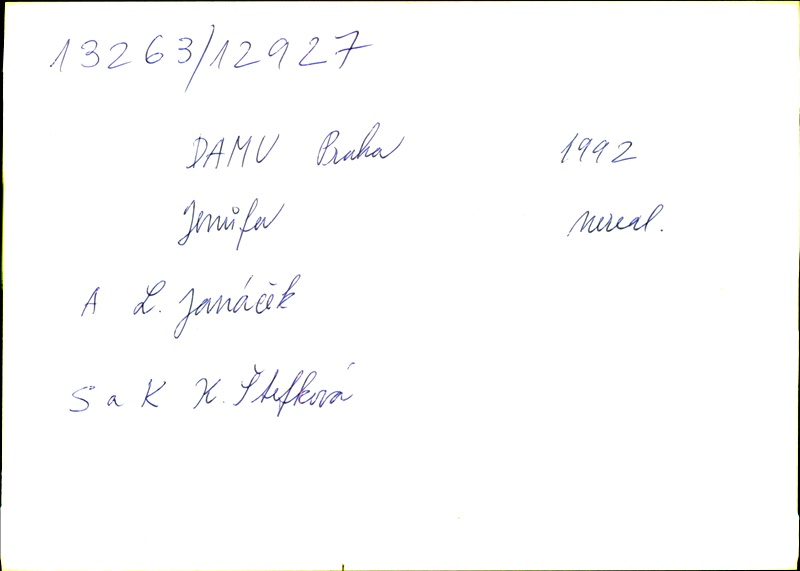 13263/12927
DAMU Praha 1992
Jenůfa nereal.
A L. Janáček
S a K K. Štefková